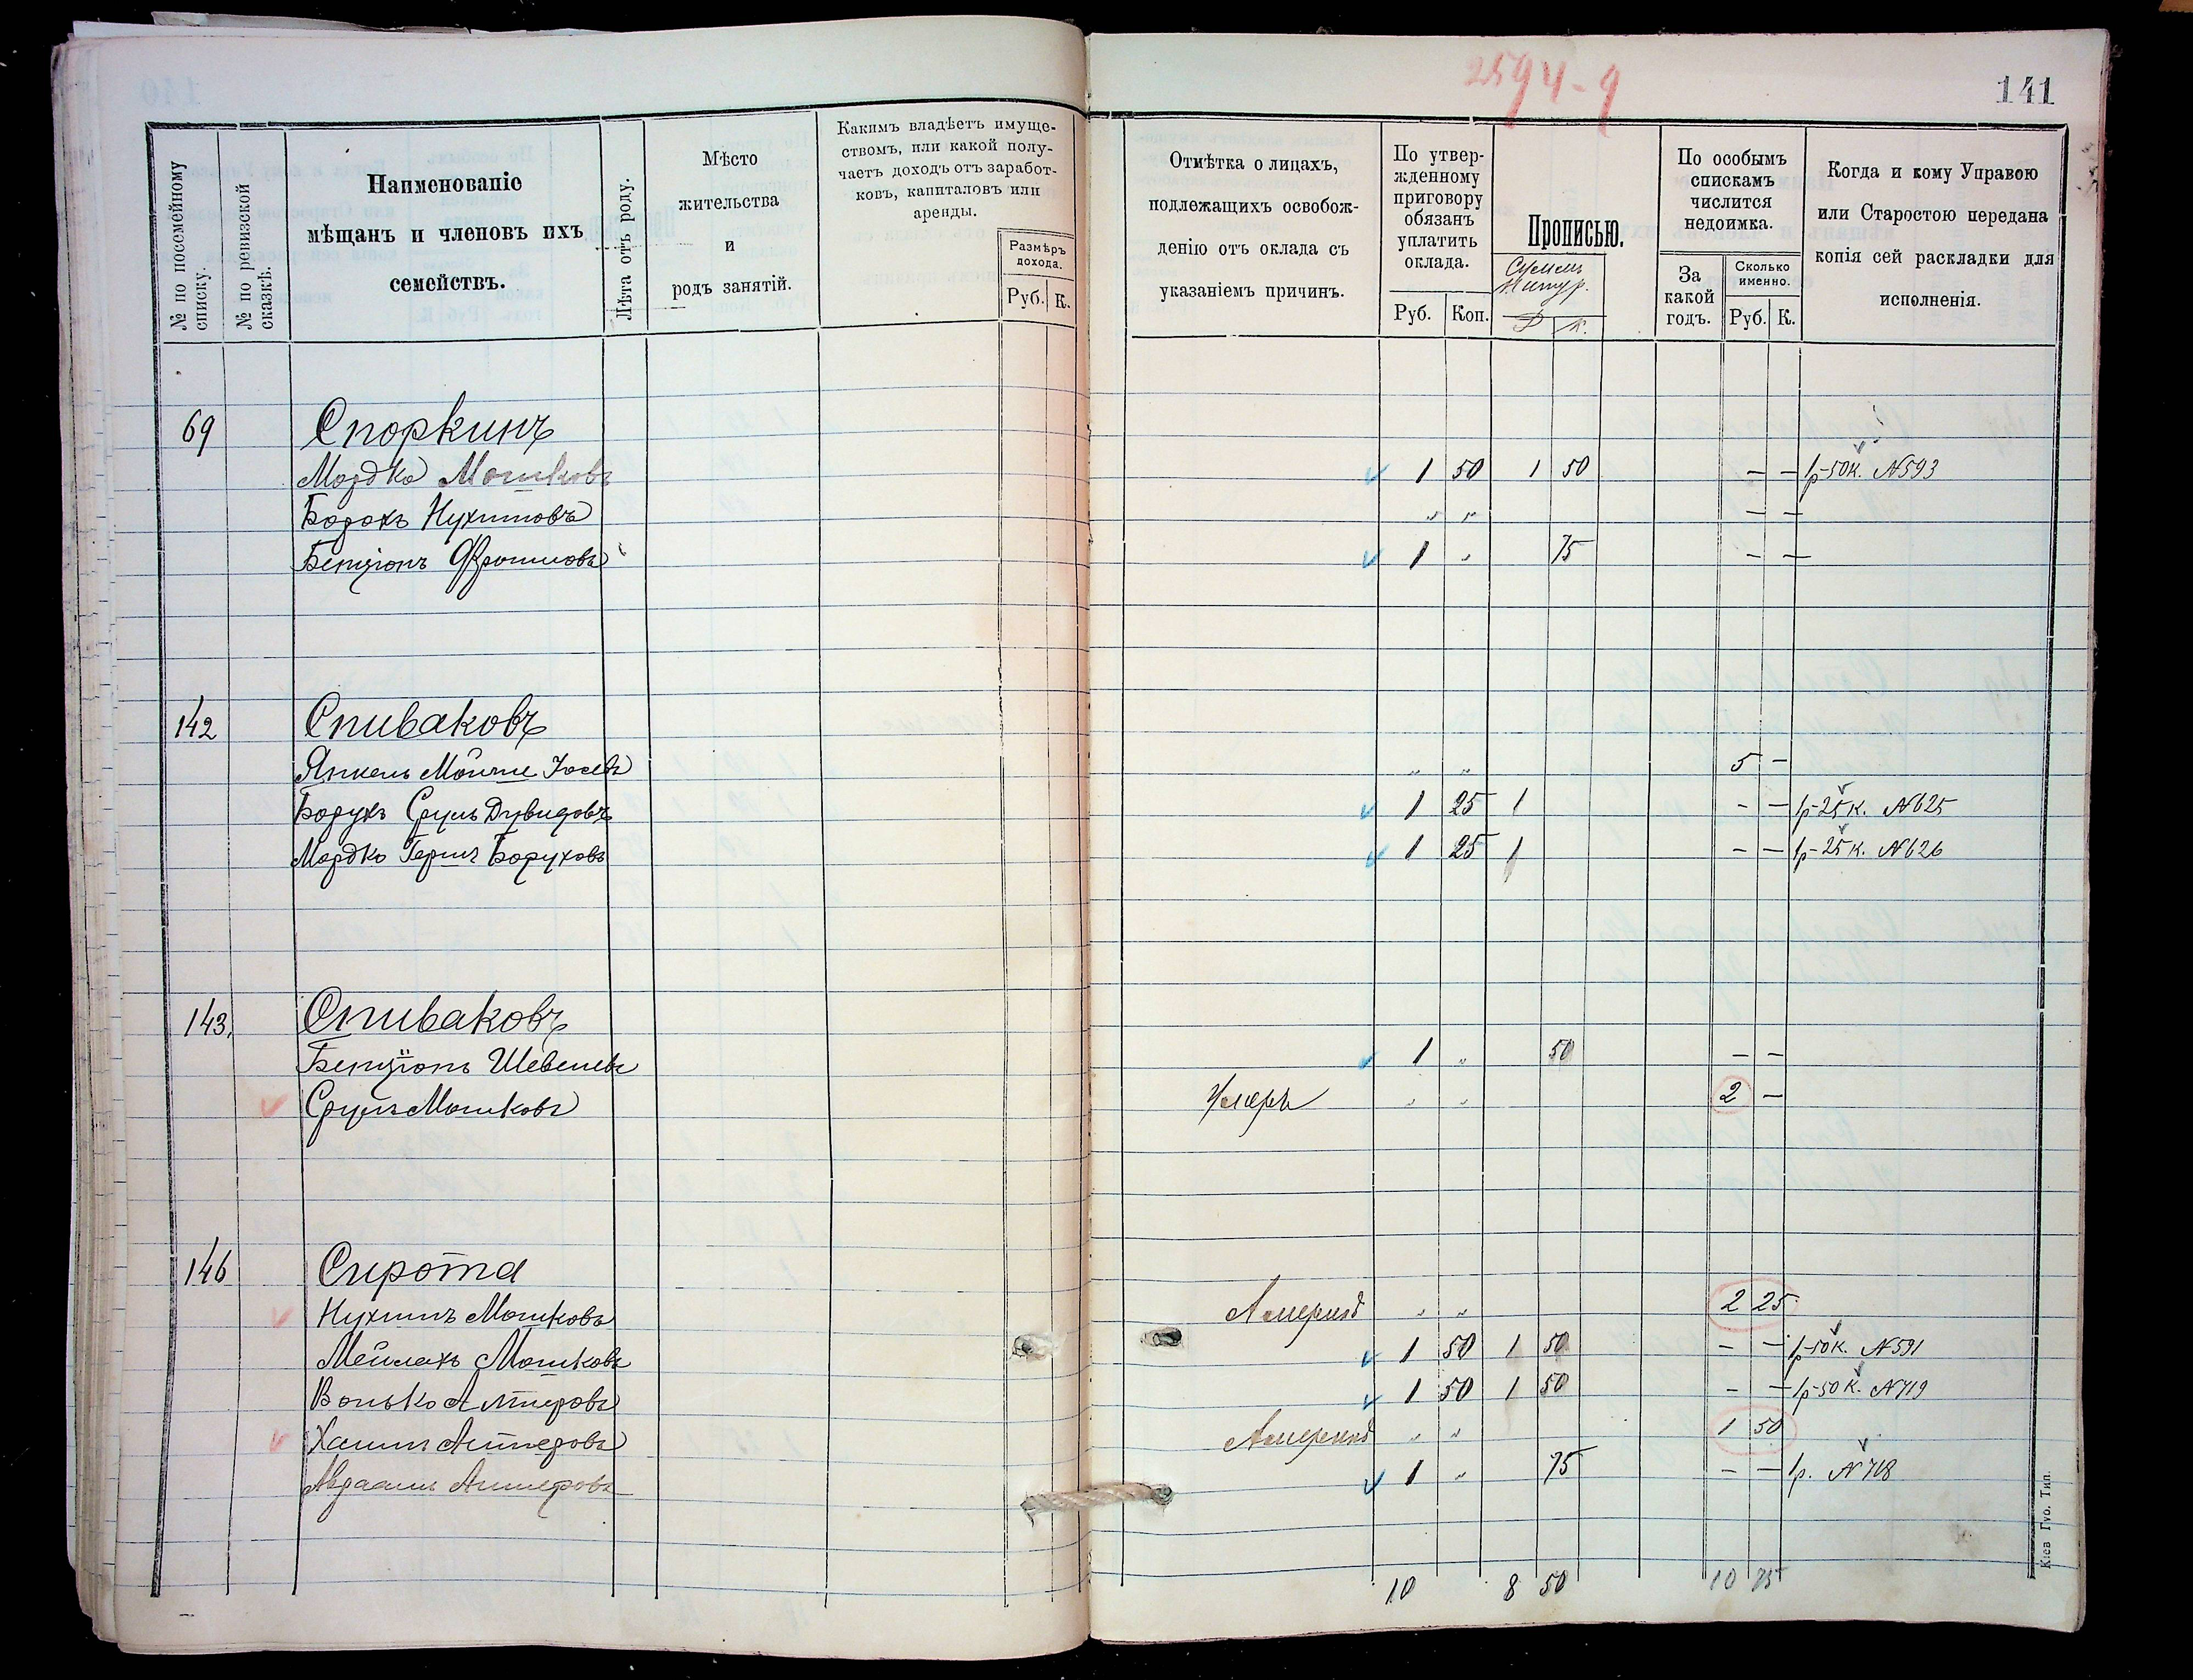 2594-9
141
№ по посемейному списку.
№ по ревизской сказкѣ.
Наименованіе мѣщанъ и членовъ ихъ семействъ.
Лѣта отъ роду.
Мѣсто жительства и родъ занятій.
Какимъ владѣетъ имуще-
ствомъ, или какой полу-
чаетъ доходъ отъ заработ-
ковъ, капиталовъ или
аренды.
Размѣръ дохода.
Руб. К.
Отмѣтка о лицахъ,
подлежащихъ освобож-
денію отъ оклада съ
указаніемъ причинъ.
По утвер-
жденному
приговору
обязанъ
уплатить
оклада.
Руб. Коп.
Прописью.
Р К.
По особымъ
спискамъ
числится
недоимка.
За какой годъ.
Сколько именно.
Руб. К.
Когда и кому Управою
или Старостою передана
копія сей раскладки для
исполненія.
69 Споркинъ
Мордко Мошковъ 1 50 1 50 — — 1р-50к. №593
Борохъ Нухимовъ " " — —
Бенціонъ Фроимовъ 1 " 75 — —
142 Спиваковъ
Янкель Мойше Іосевъ " " 5 —
Борухъ Сруль Дувидовъ 1 25 1 — — 1р-25к. №625
Мордко Гершъ Боруховъ 1 25 1 — — 1р-25к. №626
143. Спиваковъ
Бенціонъ Шевелевъ 1 " 50 — —
Сруль Мошковъ Умеръ " " 2 —
146 Сирота
Нухимъ Мошковъ " " 2 25
Мейлахъ Мошковъ 1 50 1 50 — — 1р-50к. №591
Волько Алтеровъ 1 50 1 50 — — 1р-50к. №719
Хаимъ Алтеровъ " " 1 50
Авраамъ Алтеровъ 1 " 75 — — 1р. №718
10 8 50 10 75
Кіев Гуо. Тип.